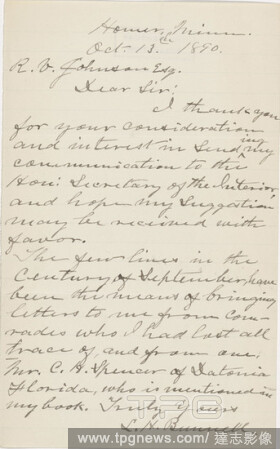 Homer, Minn.
Oct. 13th 1890.
R. V. Johnson Esq.
Dear Sir:
I thank you
for your consideration
and interest in sending my
communication to the
Hon: Secretary of the Interior
and hope my suggestion
may be received with
favor.
The few lines in the
Century of September, have
been the means of bringing
letters to me from com-
rades who I had lost all
trace of, and from one,
Mr. C. H. Spencer of Datonia
Florida, who is mentioned in
my book. Truly yours
L. H. Bunnell
TPG
www.tpgnews.com / 達志影像